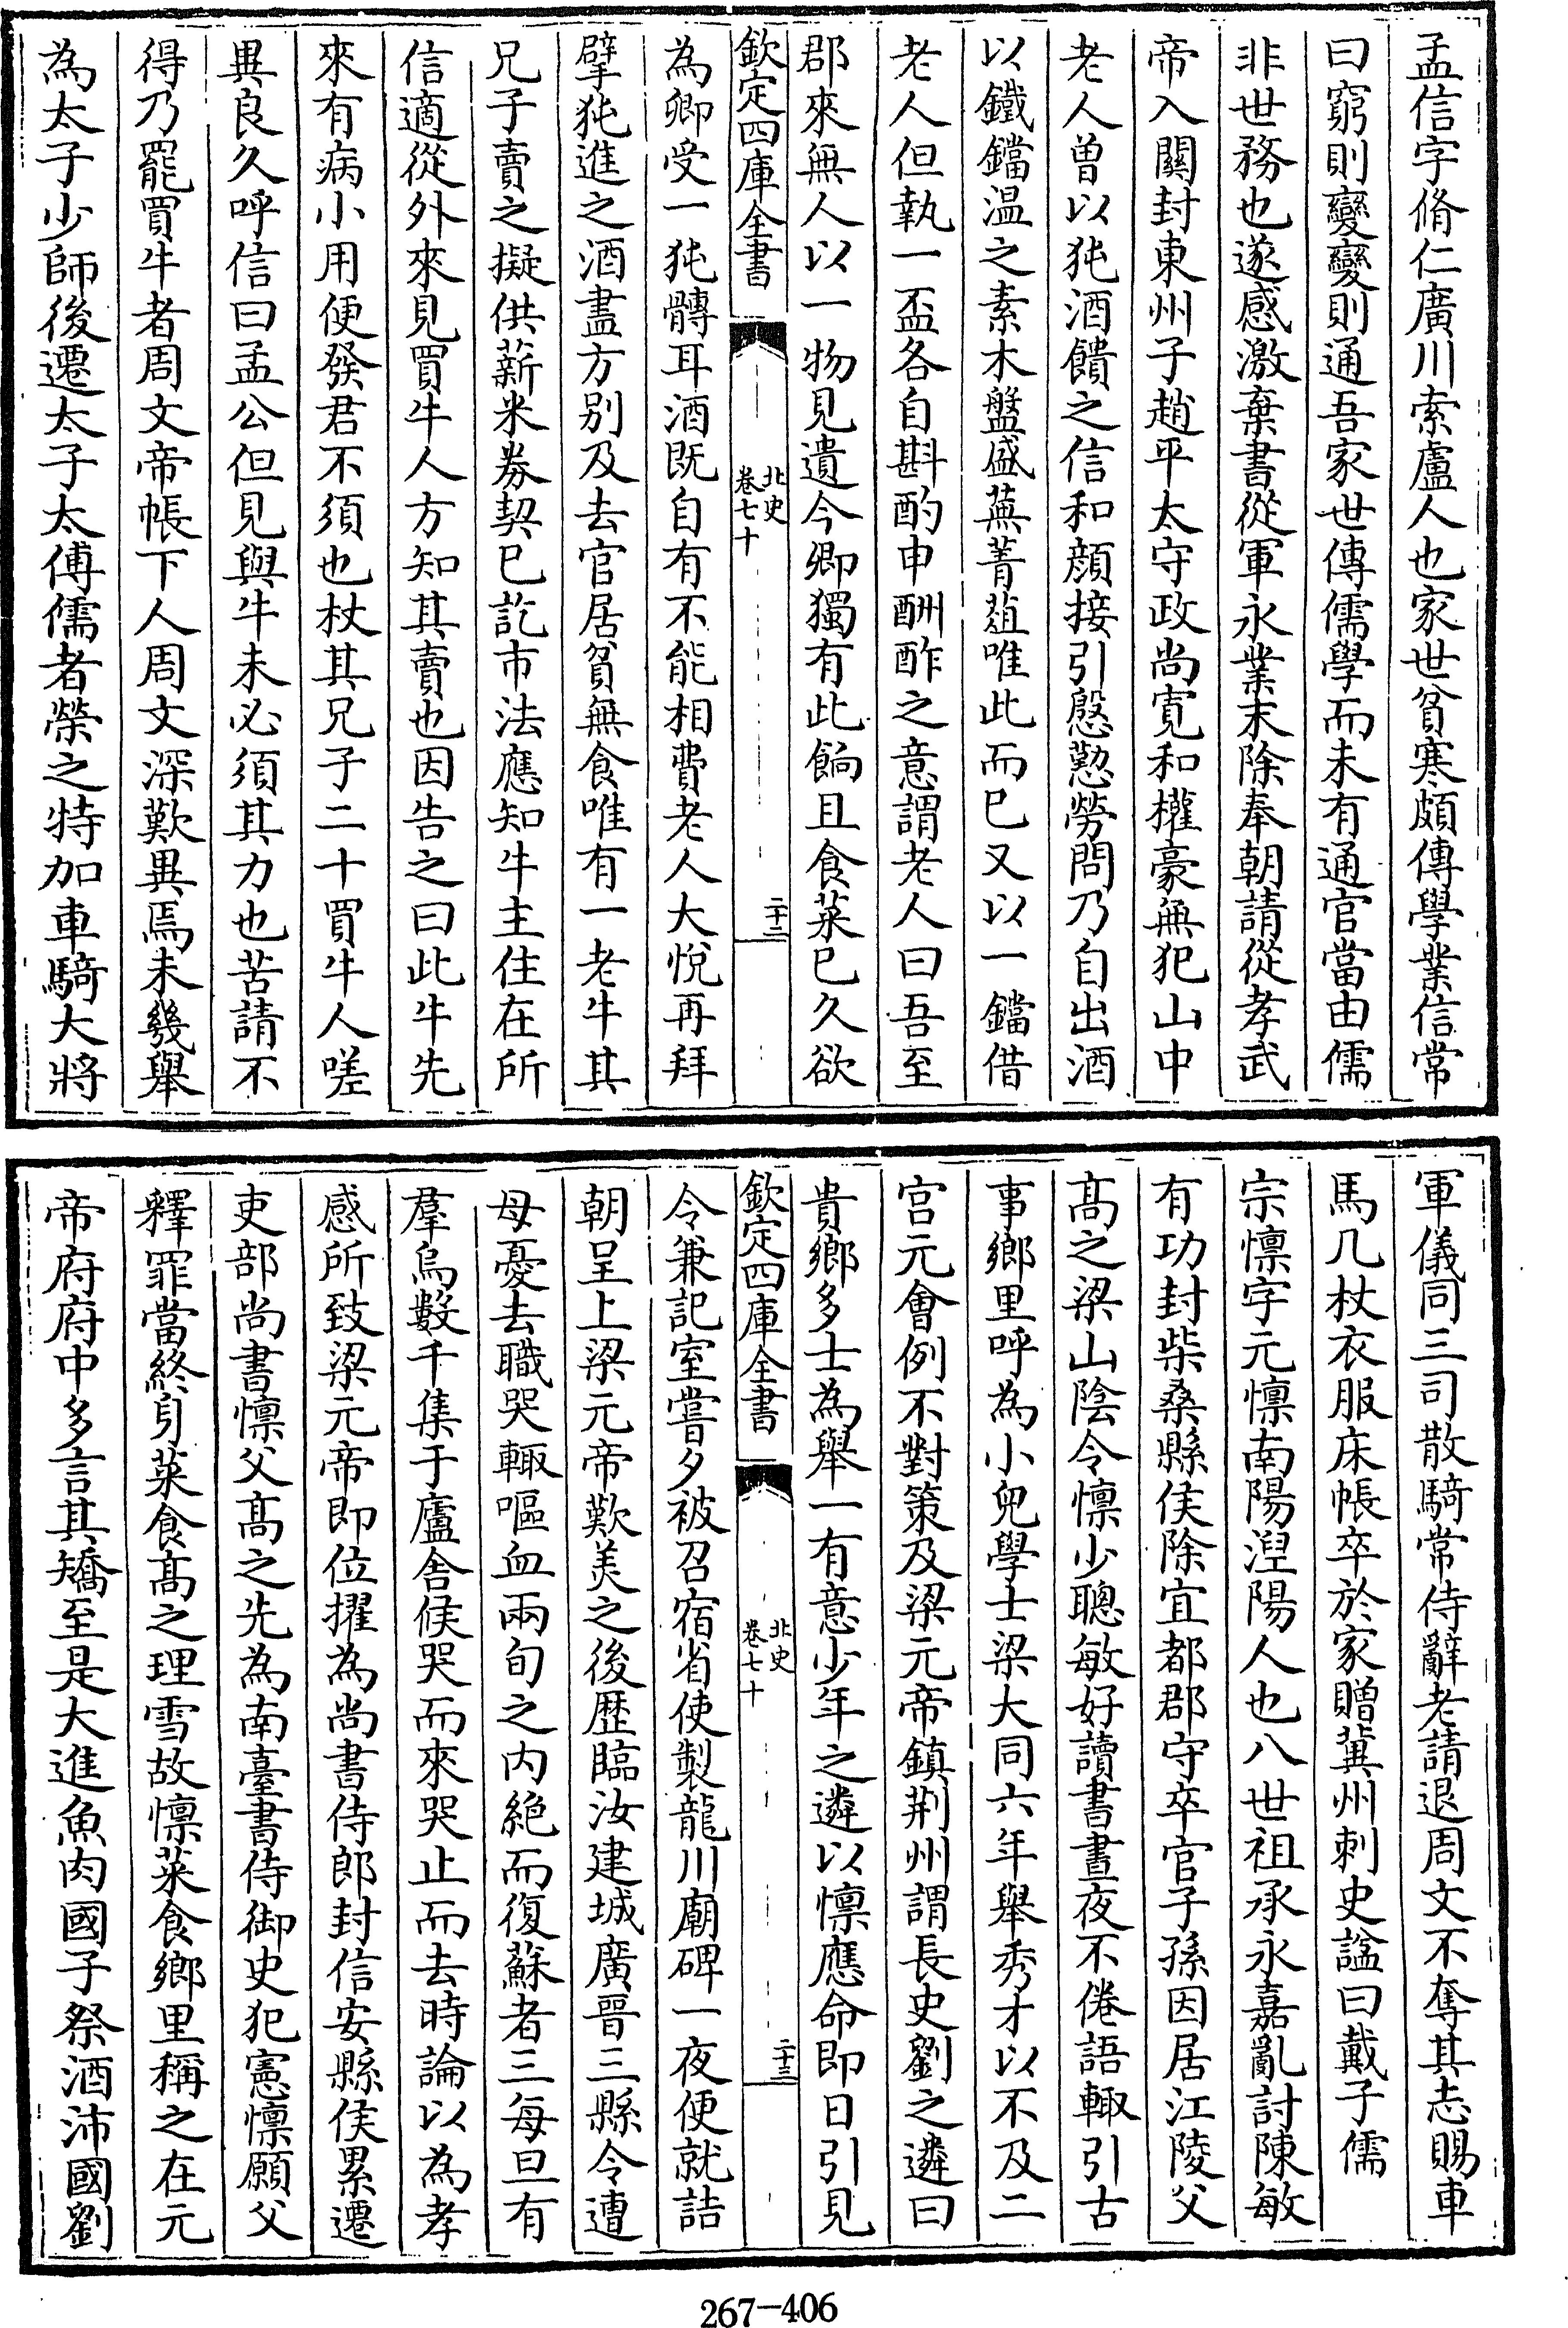 孟信字脩仁廣川索盧人也家世貧寒頗傳學業信常
曰窮則變變則通吾家世傳儒學而未有通官當由儒
非世務也遂感激棄書從軍永業末除奉朝請從孝武
帝入關封東州子趙平太守政尚寬和權豪無犯山中
老人曽以㹠酒饋之信和顔接引慇懃勞問乃自出酒
以鐵鐺温之素木盤盛蕪菁葅唯此而已又以一鐺借
老人但執一盃各自斟酌申酬酢之意謂老人曰吾至
郡來無人以一物見遺今卿獨有此餉且食菜已久欲
欽定四庫全書
北史
卷七十
二十二
為卿受一㹠髆耳酒既自有不能相費老人大悅再拜
擘㹠進之酒盡方别及去官居貧無食唯有一老牛其
兄子賣之擬供薪米券契已訖市法應知牛主住在所
信適從外來見買牛人方知其賣也因告之曰此牛先
來有病小用便發君不須也杖其兄子二十買牛人嗟
異良久呼信曰孟公但見與牛未必須其力也苦請不
得乃罷買牛者周文帝帳下人周文深歎異焉未幾舉
為太子少師後遷太子太傅儒者榮之特加車騎大將
軍儀同三司散騎常侍辭老請退周文不奪其志賜車
馬几杖衣服床帳卒於家贈冀州刺史諡曰戴子儒
宗懍字元懍南陽湼陽人也八世祖承永嘉亂討陳敏
有功封柴桑縣侯除宜都郡守卒官子孫因居江陵父
髙之梁山陰令懍少聰敏好讀書晝夜不倦語輙引古
事鄉里呼為小兒學士梁大同六年舉秀才以不及二
宫元會例不對策及梁元帝鎮荆州謂長史劉之遴曰
貴鄉多士為舉一有意少年之遴以懍應命即日引見
欽定四庫全書
北史
卷七十
二十三
令兼記室嘗夕被召宿省使製龍川廟碑一夜便就詰
朝呈上梁元帝歎美之後歴臨汝建城廣晉三縣令遭
母憂去職哭輙嘔血兩旬之内絶而復蘇者三每旦有
羣烏數千集于廬舍候哭而來哭止而去時論以為孝
感所致梁元帝即位擢為尚書侍郎封信安縣侯累遷
吏部尚書懍父髙之先為南臺書侍御史犯憲懍願父
釋罪當終身菜食髙之理雪故懍菜食鄉里稱之在元
帝府府中多言其矯至是大進魚肉國子祭酒沛國劉
267-406